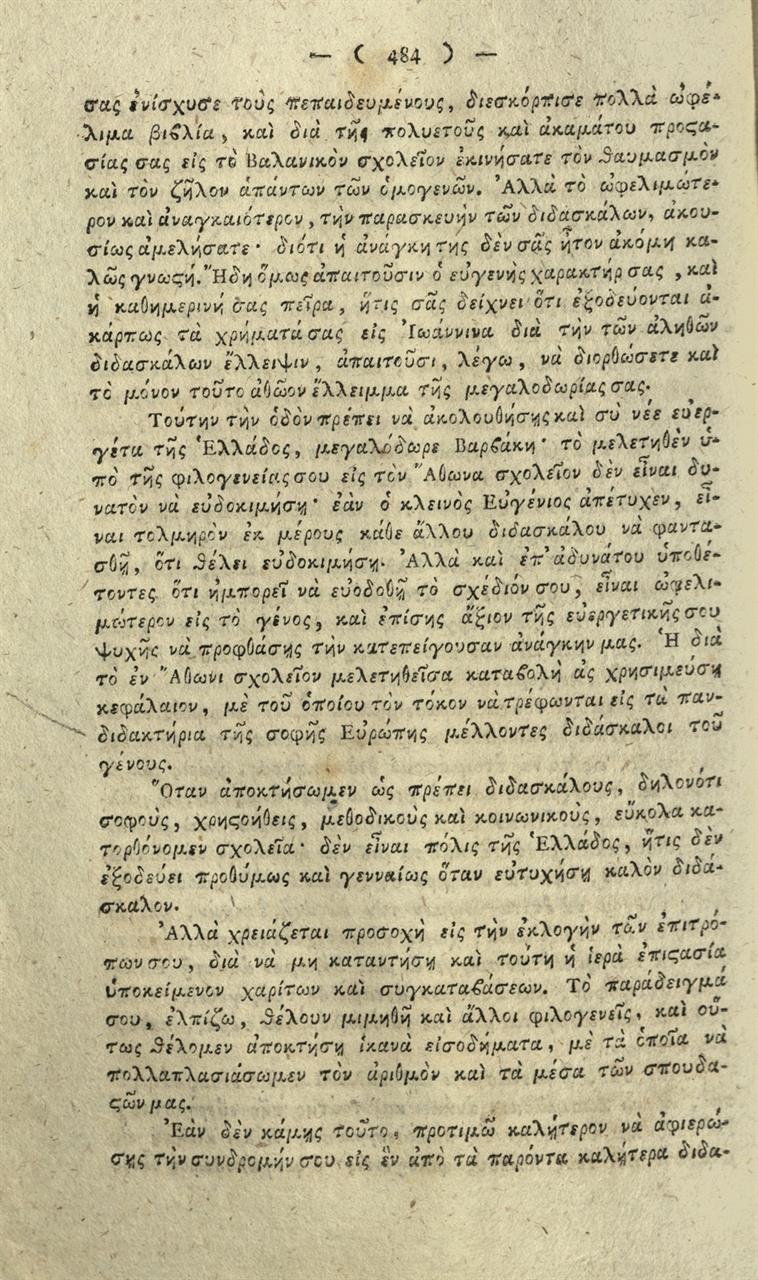 — ( 484 ) —
σας ἐνίσχυσε τοὺς πεπαιδευμένους, διεσκόρπισε πολλὰ ὠφέ-
λιμα βιϐλία, καὶ διὰ τῆς πολυετοῦς καὶ ἀκαμάτου προϛα-
σίας σας εἰς τὸ Βαλανικὸν σχολεῖον ἐκινήσατε τὸν ϑαυμασμὸν
καὶ τὸν ζῆλον ἁπάντων τῶν ὁμογενῶν. Ἀλλὰ τὸ ὠφελιμώτε-
ρον καὶ ἀναγκαιότερον, τὴν παρασκευὴν τῶν διδασκάλων, ἀκου-
σίως ἀμελήσατε· διότι ἡ ἀνάγκη της δὲν σᾶς ἦτον ἀκόμη κα-
λῶς γνωϛή. Ἤδη ὅμως ἀπαιτοῦσιν ὁ εὐγενὴς χαρακτήρ σας, καὶ
ἡ καθημερινή σας πεῖρα, ἥτις σᾶς δείχνει ὅτι ἐξοδεύονται ἀ-
κάρπως τὰ χρήματά σας εἰς Ἰωάννινα διὰ τὴν τῶν ἀληθῶν
διδασκάλων ἔλλειψιν, ἀπαιτοῦσι, λέγω, νὰ διορθώσετε καὶ
τὸ μόνον τοῦτο ἀθῶον ἔλλειμμα τῆς μεγαλοδωρίας σας.
Τούτην τὴν ὁδὸν πρέπει νὰ ἀκολουθήσῃς καὶ σὺ νέε εὐερ-
γέτα τῆς Ἑλλάδος, μεγαλόδωρε Βαρϐάκη· τὸ μελετηθὲν ὑ-
πὸ τῆς φιλογενείας σου εἰς τὸν Ἄθωνα σχολεῖον δὲν εἶναι δυ-
νατὸν νὰ εὐδοκιμήσῃ· ἐὰν ὁ κλεινὸς Εὐγένιος ἀπέτυχεν, εἶ-
ναι τολμηρὸν ἐκ μέρους κάθε ἄλλου διδασκάλου νὰ φαντα-
σθῇ, ὅτι ϑέλει εὐδοκιμήσῃ. Ἀλλὰ καὶ ἐπ' ἀδυνάτου ὑποθέ-
τοντες ὅτι ἠμπορεῖ νὰ εὐοδοθῇ τὸ σχέδιόν σου, εἶναι ὠφελι-
μώτερον εἰς τὸ γένος, καὶ ἐπίσης ἄξιον τῆς εὐεργετικῆς σου
ψυχῆς νὰ προφθάσῃς τὴν κατεπείγουσαν ἀνάγκην μας. Ἡ διὰ
τὸ ἐν Ἄθωνι σχολεῖον μελετηθεῖσα καταϐολὴ ἂς χρησιμεύσῃ
κεφάλαιον, μὲ τοῦ ὁποίου τὸν τόκον νὰ τρέφωνται εἰς τὰ παν-
διδακτήρια τῆς σοφῆς Εὐρώπης μέλλοντες διδάσκαλοι τοῦ
γένους.
Ὅταν ἀποκτήσωμεν ὡς πρέπει διδασκάλους, δηλονότι
σοφοὺς, χρηϛοήθεις, μεθοδικοὺς καὶ κοινωνικοὺς, εὔκολα κα-
τορθόνομεν σχολεῖα· δὲν εἶναι πόλις τῆς Ἑλλάδος, ἥτις δὲν
ἐξοδεύει προθύμως καὶ γενναίως ὅταν εὐτυχήσῃ καλὸν διδά-
σκαλον.
Ἀλλὰ χρειάζεται προσοχὴ εἰς τὴν ἐκλογὴν τῶν ἐπιτρό-
πων σου, διὰ νὰ μὴ καταντήσῃ καὶ τούτη ἡ ἱερὰ ἐπιϛασία
ὑποκείμενον χαρίτων καὶ συγκαταϐάσεων. Τὸ παράδειγμά
σου, ἐλπίζω, ϑέλουν μιμηθῆ καὶ ἄλλοι φιλογενεῖς, καὶ οὕ-
τως ϑέλομεν ἀποκτήσῃ ἱκανὰ εἰσοδήματα, μὲ τὰ ὁποῖα νὰ
πολλαπλασιάσωμεν τὸν ἀριθμὸν καὶ τὰ μέσα τῶν σπουδα-
ϛῶν μας.
Ἐὰν δὲν κάμῃς τοῦτο, προτιμῶ καλήτερον νὰ ἀφιερώ-
σῃς τὴν συνδρομήν σου εἰς ἓν ἀπὸ τὰ παρόντα καλήτερα διδα-